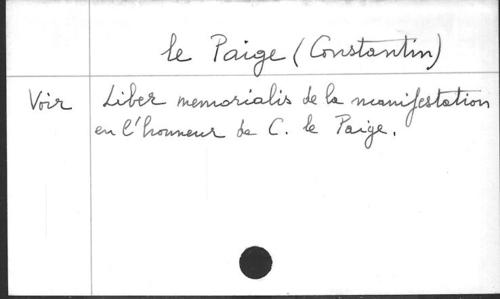 le Paige (Constantin)
Voir Liber memorialis de la manifestation
en l'honneur de C. le Paige.